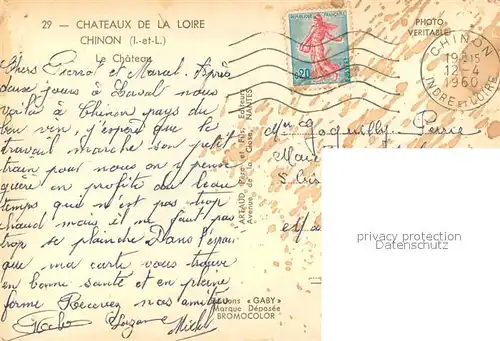 29 — CHATEAUX DE LA LOIRE
CHINON (I.-et-L.)
Le Château
Chers Pierrot et Marcel. Après
deux jours à Laval nous
voilà à Chinon pays du
bon vin, j'espère que le
travail marche son petit
train pour nous on y pense
guère on profite du beau
temps qui n'est pas trop
chaud mais il ne faut pas
trop se plaindre Dans l'espoir
que ma carte vous trouve
en bonne santé et en pleine
forme Recevez nos amitiés
Suzanne Michel
PHOTO
VERITABLE
REPUBLIQUE FRANÇAISE
0,20
CHINON
19 15
12-4
1960
INDRE ET LOIRE
ARTAUD Père et Fils, Editeurs
Avenue de la Close, NANTES
Pierre
Editions "GABY"
Marque Déposée
BROMOCOLOR
privacy protection
Datenschutz